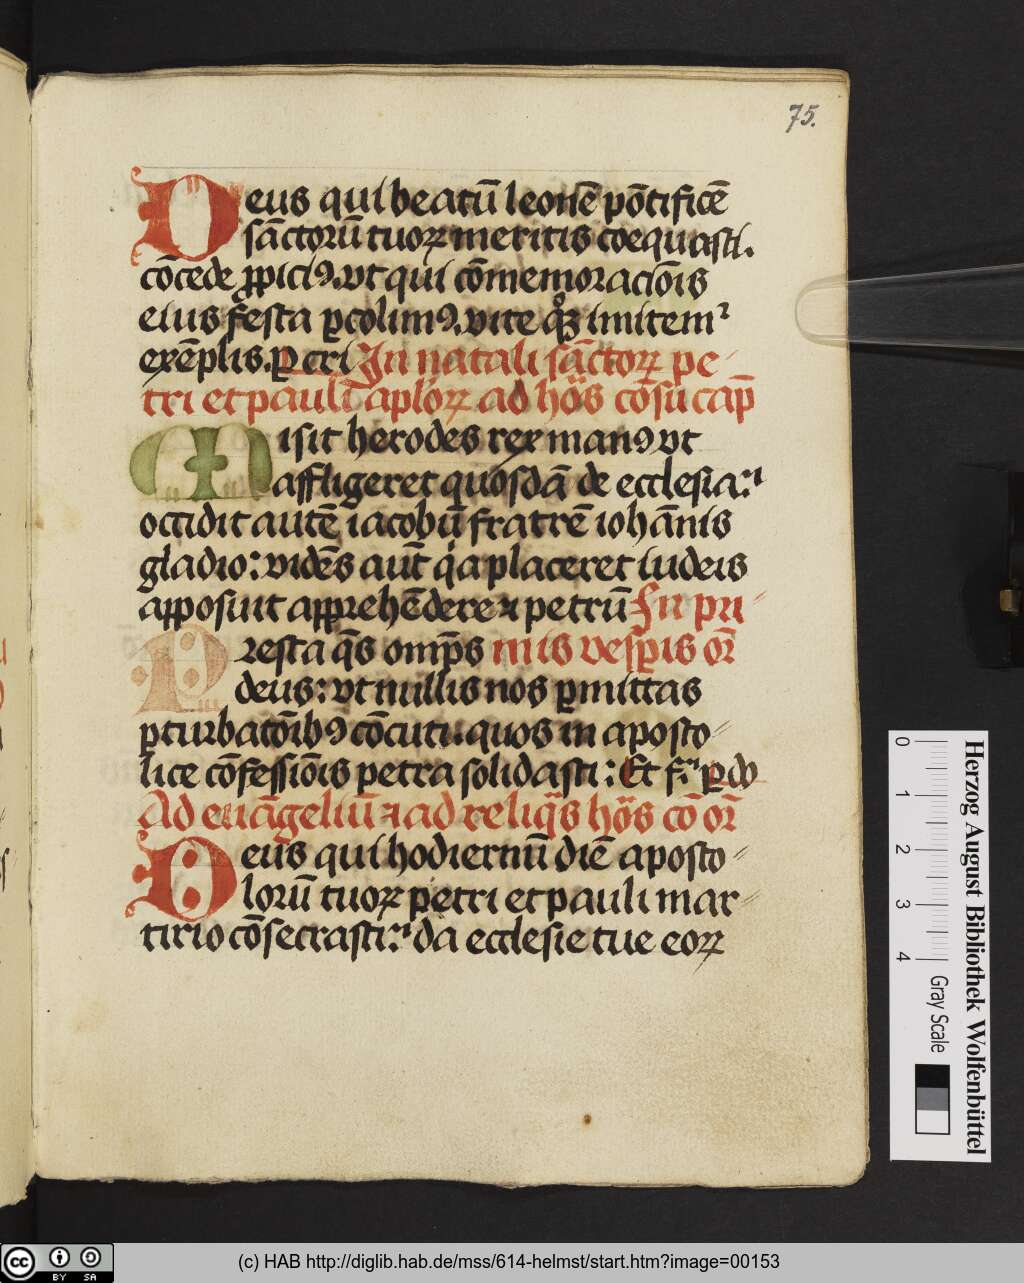 75.
Deus qui beatū leonē pōtificē
sāctorū tuoꝝ meritis coequasti.
cōcede ꝓpiciꝰ. vt qui cōmemoracōis
eius festa ꝑcolimꝰ. vite qͦꝫ imitemᷣ
exēplis. ꝑ cri In natali sāctoꝝ pe
tri et pauli aploꝝ ad hōs cōsu cap̄
Misit herodes rex manꝰ vt
affligeret quosdā de ecclesia:
occidit autē iacobū fratrē iohānis
gladio: vidēs aut̄ qͥa placeret iudeis
apposuit apprehēdere ⁊ petrū In pri
Presta qͣs omp̄s mis vesꝑis or̄
deus: vt nullis nos ꝑmittas
ꝑturbatōibꝰ cōcuti. quos in aposto
lice cōfessiōis petra solidasti: Et f. ꝑ do
Ad euāgeliū ⁊ ad reliqͣs hōs cō or̄
Deus qui hodiernū diē aposto
lorū tuoꝝ petri et pauli mar
tirio cōsecrasti: da ecclesie tue eoꝝ
0 1 2 3 4
Gray Scale
Herzog August Bibliothek Wolfenbüttel
cc BY SA
(c) HAB http://diglib.hab.de/mss/614-helmst/start.htm?image=00153